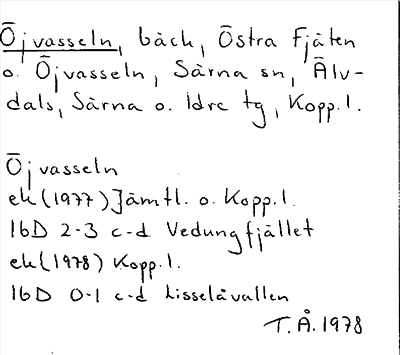 Öjvasseln, bäck, Östra Fjäten
o. Öjvasseln, Särna sn, Älv-
dals, Särna o. Idre tg, Kopp.l.
Öjvasseln
ek (1977) Jämtl. o. Kopp.l.
16D 2-3 c-d Vedungfjället
ek (1978) Kopp.l.
16D 0-1 c-d Lisselåvallen
T.Å. 1978